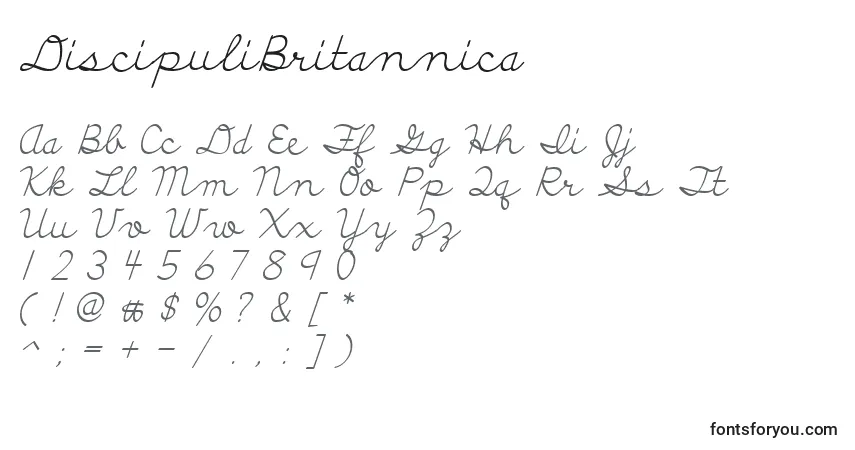 DiscipuliBritannica
Aa Bb Cc Dd Ee Ff Gg Hh Ii Jj
Kk Ll Mm Nn Oo Pp Qq Rr Ss Tt
Uu Vv Ww Xx Yy Zz
1 2 3 4 5 6 7 8 9 0
( ! @ # $ % ? & [ *
^ ; = + - / . , : ] )
fontsforyou.com